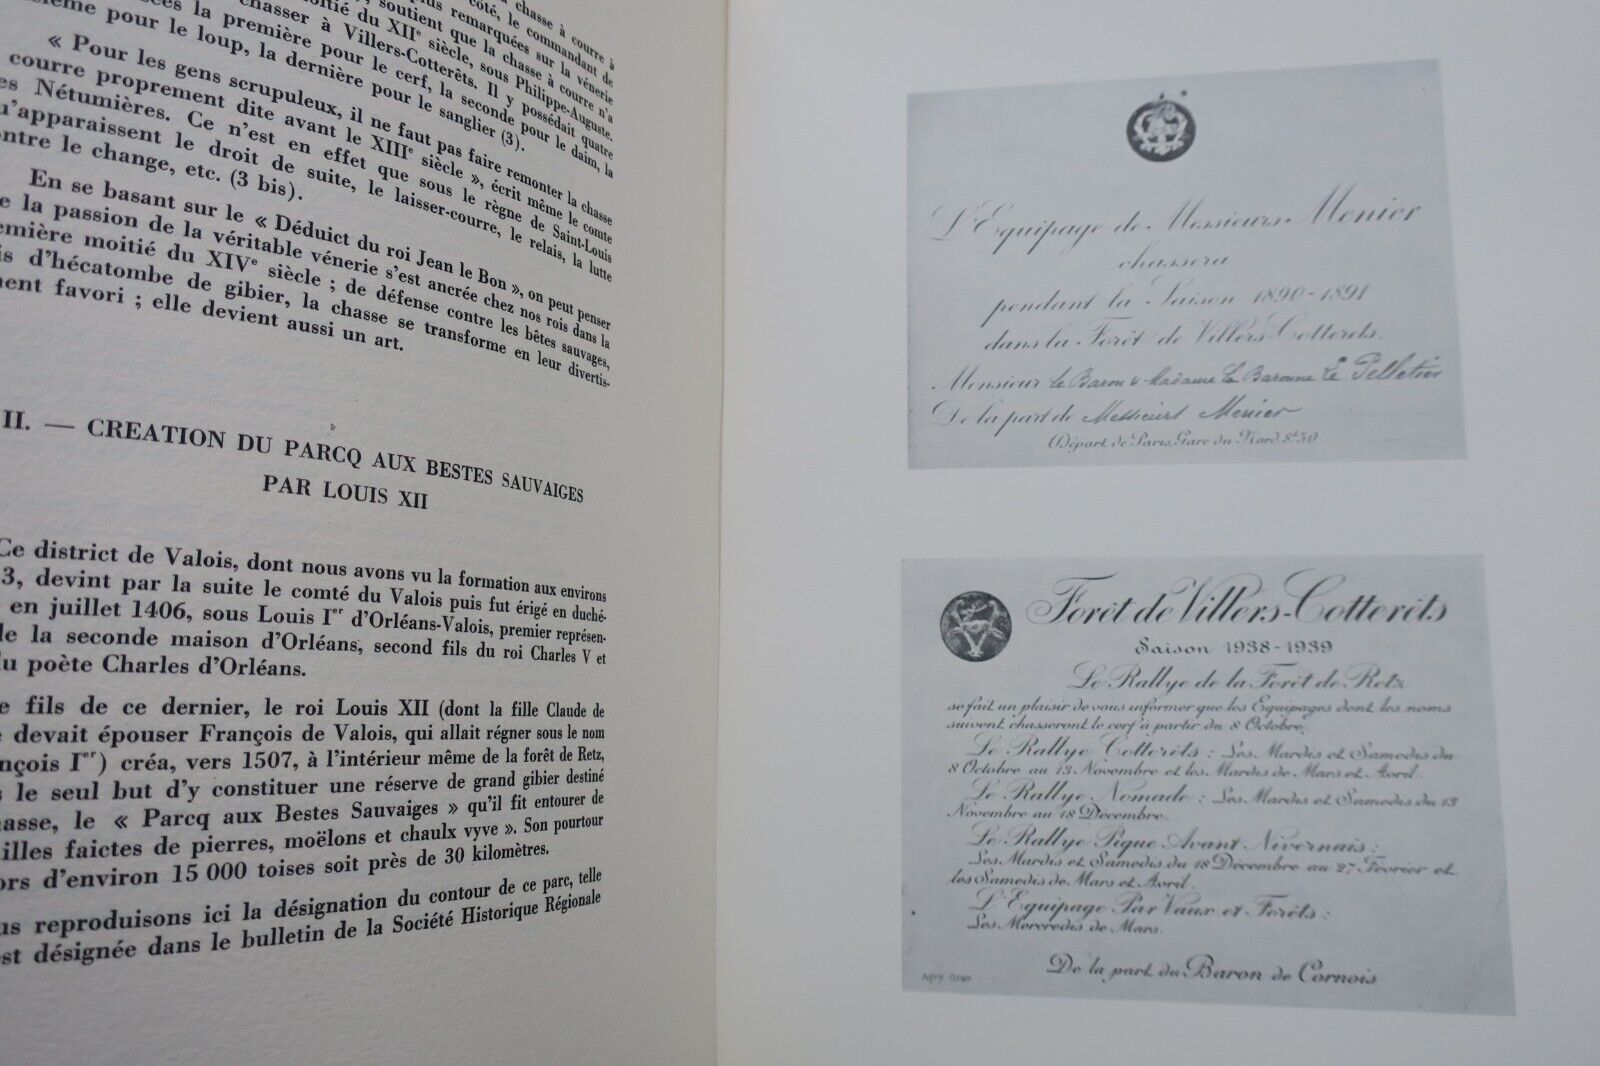 chasse à courre à
côté, le commandant de
plus remarquées sur la vénerie
soutient que la chasse à courre n'a
moitié du XIIe siècle, sous Philippe-Auguste.
chasser à Villers-Cotterêts. Il y possédait quatre
la première pour le cerf, la seconde pour le daim, la
pour le loup, la dernière pour le sanglier (3).
« Pour les gens scrupuleux, il ne faut pas faire remonter la chasse
courre proprement dite avant le XIIIe siècle », écrit même le comte
es Nétumières. Ce n'est en effet que sous le règne de Saint-Louis
u'apparaissent le droit de suite, le laisser-courre, le relais, la lutte
ontre le change, etc. (3 bis).
En se basant sur le « Déduict du roi Jean le Bon », on peut penser
e la passion de la véritable vénerie s'est ancrée chez nos rois dans la
emière moitié du XIVe siècle ; de défense contre les bêtes sauvages,
is d'hécatombe de gibier, la chasse se transforme en leur divertis-
ment favori ; elle devient aussi un art.
II. — CREATION DU PARCQ AUX BESTES SAUVAIGES
PAR LOUIS XII
Ce district de Valois, dont nous avons vu la formation aux environs
3, devint par la suite le comté du Valois puis fut érigé en duché-
en juillet 1406, sous Louis Ier d'Orléans-Valois, premier représen-
de la seconde maison d'Orléans, second fils du roi Charles V et
du poète Charles d'Orléans.
e fils de ce dernier, le roi Louis XII (dont la fille Claude de
e devait épouser François de Valois, qui allait régner sous le nom
nçois Ier) créa, vers 1507, à l'intérieur même de la forêt de Retz,
s le seul but d'y constituer une réserve de grand gibier destiné
hasse, le « Parcq aux Bestes Sauvaiges » qu'il fit entourer de
ailles faictes de pierres, moëlons et chaulx vyve ». Son pourtour
ors d'environ 15 000 toises soit près de 30 kilomètres.
us reproduisons ici la désignation du contour de ce parc, telle
est désignée dans le bulletin de la Société Historique Régionale
L'Equipage de Messieurs Menier
chassera
pendant la Saison 1890-1891
dans la Forêt de Villers-Cotterets.
Monsieur Le Baron & Madame La Baronne Le Pelletier
De la part de Messieurs Menier
(Départ de Paris, Gare du Nord, 8h50
Forêt de Villers-Cotterêts
Saison 1938-1939
Le Rallye de la Forêt de Retz
se fait un plaisir de vous informer que les Equipages dont les noms
suivent chasseront le cerf à partir du 8 Octobre.
Le Rallye Cotterêts : Les Mardis et Samedis du
8 Octobre au 13 Novembre et les Mardis de Mars et Avril.
Le Rallye Nomade : Les Mardis et Samedis du 13
Novembre au 18 Décembre.
Le Rallye Pique Avant Nivernais :
Les Mardis et Samedis du 18 Décembre au 27 Février et
les Samedis de Mars et Avril.
L'Equipage Par Vaux et Forêts :
Les Mercredis de Mars.
De la part du Baron de Cornois